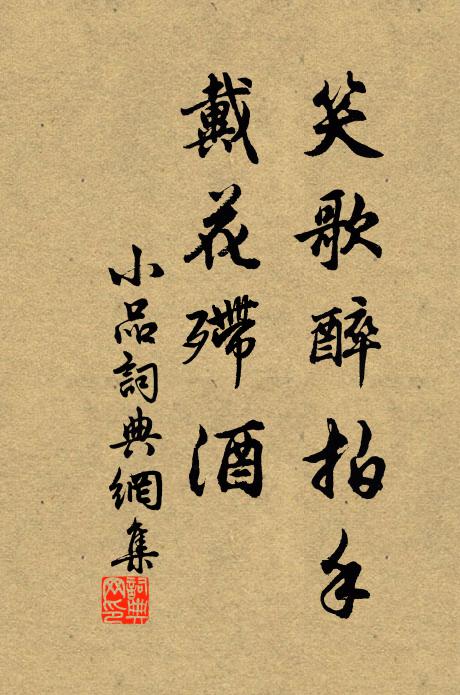 笑歌醉拍手
戴花殢酒
小品詞典網集
詞典
网印